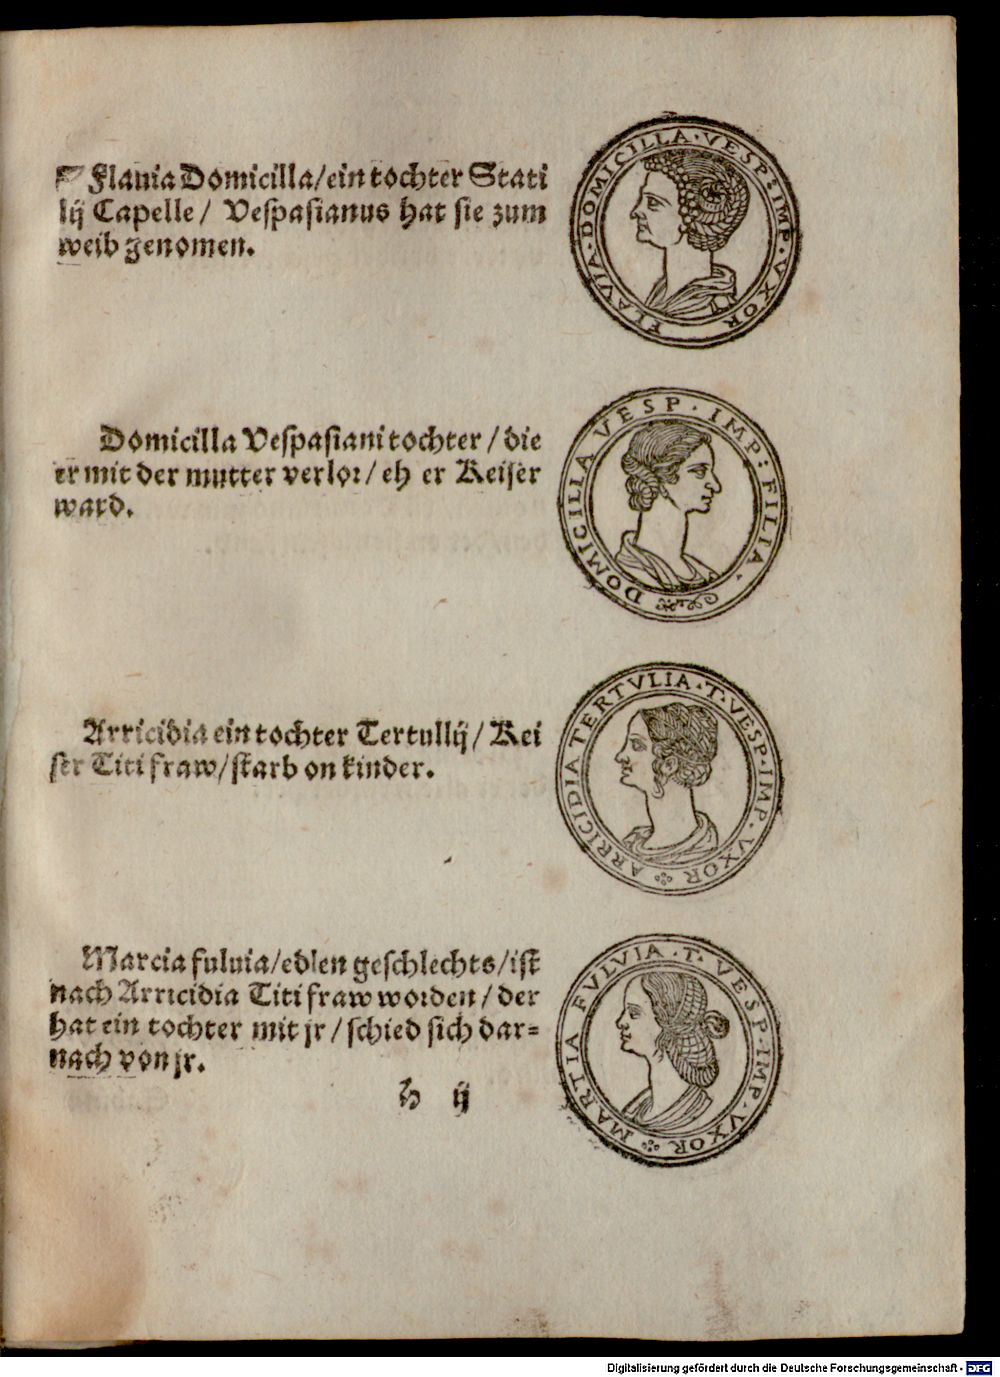 ☞ Flauia Domicilla/ein tochter Stati
lij Capelle/ Vespasianus hat sie zum
weib genomen.
FLAVIA·DOMICILLA·VESP:IMP·VXOR
Domicilla Vespasiani tochter/die
er mit der mutter verlor/eh er Keiser
ward.
DOMICILLA VESP·IMP:FILIA·
Arricidia ein tochter Tertullij/Kei
ser Titi fraw/starb on kinder.
ARRICIDIA TERTVLIA·T·VESP·IMP·VXOR
Marcia fuluia/edlen geschlechts/ist
nach Arricidia Titi fraw worden/der
hat ein tochter mit jr/schied sich dar=
nach von jr.
MARTIA FVLVIA·T·VESP·IMP·VXOR
h ij
Digitalisierung gefördert durch die Deutsche Forschungsgemeinschaft - DFG